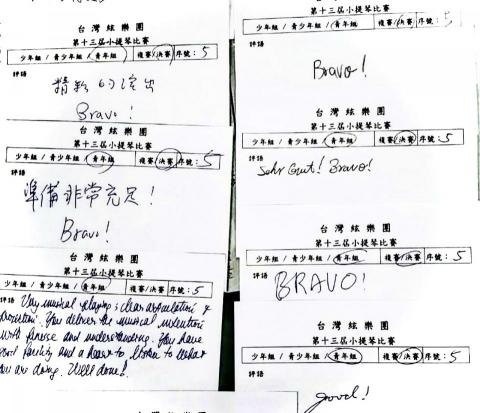 台灣絃樂團
第十三屆小提琴比賽
少年組 / 青少年組 / 青年組 複賽/決賽 序號: 5
評語
精彩的演出
Bravo!
台灣絃樂團
第十三屆小提琴比賽
少年組 / 青少年組 / 青年組 複賽/決賽 序號: 5
評語
準備非常充足!
Bravo!
台灣絃樂團
第十三屆小提琴比賽
少年組 / 青少年組 / 青年組 複賽/決賽 序號: 5
評語 Very musical playing; clear articulation &
You deliver the musical intention
with finesse and understanding. You have
good facility and a heart to listen to what
you are doing. Well done!
第十三屆小提琴比賽
少年組 / 青少年組 / 青年組 複賽/決賽 序號: 5
評語
Bravo!
台灣絃樂團
第十三屆小提琴比賽
少年組 / 青少年組 / 青年組 複賽/決賽 序號: 5
評語
Sehr Gut! Bravo!
台灣絃樂團
第十三屆小提琴比賽
少年組 / 青少年組 / 青年組 複賽/決賽 序號: 5
評語
BRAVO!
台灣絃樂團
第十三屆小提琴比賽
少年組 / 青少年組 / 青年組 複賽/決賽 序號: 5
評語
good!